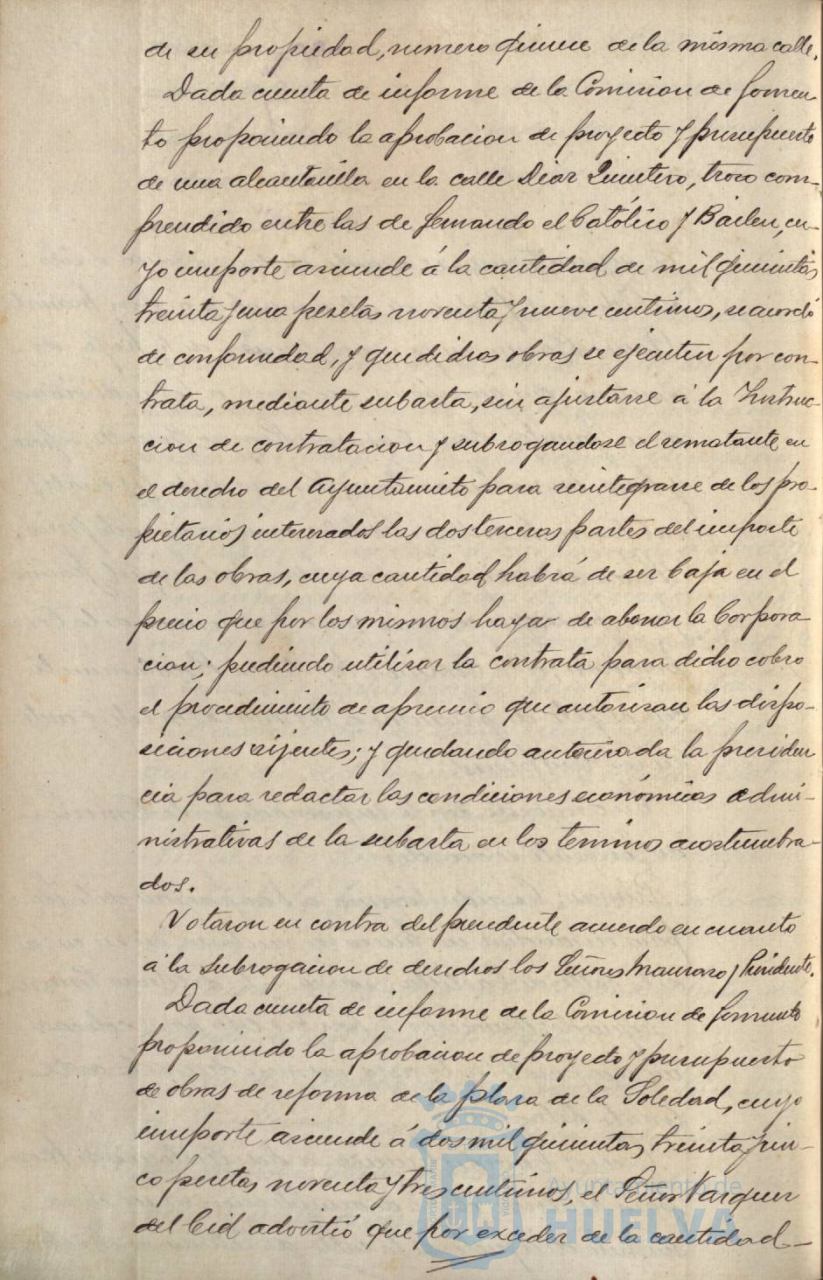 de su propiedad, numero quince de la misma calle.
Dada cuenta de informe de la Comision de fomen-
to proponiendo la aprobacion de proyecto y presupuesto
de una alcantarilla en la calle Diaz Quintero, trozo com-
prendido entre las de Fernando el Católico y Bailen, cu-
yo importe asciende á la cantidad de mil quinientas
treinta y una pesetas noventa y nueve centimos, se acordó
de conformidad, y que dichas obras se ejecuten por con-
trata, mediante subasta, sin ajustarse á la Instruc-
cion de contratacion y subrogandose el rematante en
el derecho del Ayuntamiento para reintegrarse de los pro-
pietarios interesados las dos terceras partes del importe
de las obras, cuya cantidad habrá de ser baja en el
precio que por los mismos haya de abonar la Corpora-
cion; pudiendo utilizar la contrata para dicho cobro
el procedimiento de apremio que autorizan las dispo-
siciones vijentes; y quedando autorizada la presiden
cia para redactar las condiciones económicas admi-
nistrativas de la subasta en los terminos acostumbra-
dos.
Votaron en contra del precedente acuerdo en cuanto
á la subrogacion de derechos los Señores y Presidente.
Dada cuenta de informe de la Comision de fomento
proponiendo la aprobacion de proyecto y presupuesto
de obras de reforma de la plaza de la Soledad, cuyo
importe asciende á dos mil quinientas treinta y cin-
co pesetas noventa y tres centimos, el Señor Vazquez
del Cid advirtió que por exceder de la cantidad
Ayuntamiento de
HUELVA